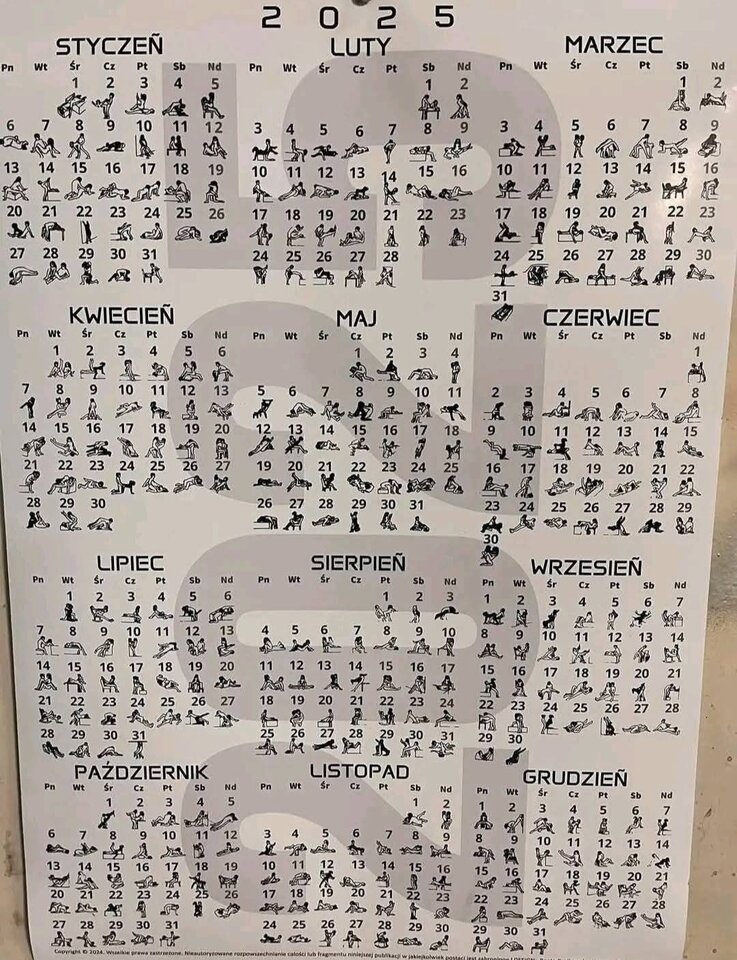 2 0 2 5
STYCZEŃ
Pn Wt Śr Cz Pt Sb Nd
1 2 3 4 5
6 7 8 9 10 11 12
13 14 15 16 17 18 19
20 21 22 23 24 25 26
27 28 29 30 31
LUTY
Pn Wt Śr Cz Pt Sb Nd
1 2
3 4 5 6 7 8 9
10 11 12 13 14 15 16
17 18 19 20 21 22 23
24 25 26 27 28
MARZEC
Pn Wt Śr Cz Pt Sb Nd
1 2
3 4 5 6 7 8 9
10 11 12 13 14 15 16
17 18 19 20 21 22 23
24 25 26 27 28 29 30
31
KWIECIEŃ
Pn Wt Śr Cz Pt Sb Nd
1 2 3 4 5 6
7 8 9 10 11 12 13
14 15 16 17 18 19 20
21 22 23 24 25 26 27
28 29 30
MAJ
Pn Wt Śr Cz Pt Sb Nd
1 2 3 4
5 6 7 8 9 10 11
12 13 14 15 16 17 18
19 20 21 22 23 24 25
26 27 28 29 30 31
CZERWIEC
Pn Wt Śr Cz Pt Sb Nd
1
2 3 4 5 6 7 8
9 10 11 12 13 14 15
16 17 18 19 20 21 22
23 24 25 26 27 28 29
30
LIPIEC
Pn Wt Śr Cz Pt Sb Nd
1 2 3 4 5 6
7 8 9 10 11 12 13
14 15 16 17 18 19 20
21 22 23 24 25 26 27
28 29 30 31
SIERPIEŃ
Pn Wt Śr Cz Pt Sb Nd
1 2 3
4 5 6 7 8 9 10
11 12 13 14 15 16 17
18 19 20 21 22 23 24
25 26 27 28 29 30 31
WRZESIEŃ
Pn Wt Śr Cz Pt Sb Nd
1 2 3 4 5 6 7
8 9 10 11 12 13 14
15 16 17 18 19 20 21
22 23 24 25 26 27 28
29 30
PAŹDZIERNIK
Pn Wt Śr Cz Pt Sb Nd
1 2 3 4 5
6 7 8 9 10 11 12
13 14 15 16 17 18 19
20 21 22 23 24 25 26
27 28 29 30 31
LISTOPAD
Pn Wt Śr Cz Pt Sb Nd
1 2
3 4 5 6 7 8 9
10 11 12 13 14 15 16
17 18 19 20 21 22 23
24 25 26 27 28 29 30
GRUDZIEŃ
Pn Wt Śr Cz Pt Sb Nd
1 2 3 4 5 6 7
8 9 10 11 12 13 14
15 16 17 18 19 20 21
22 23 24 25 26 27 28
29 30 31
2025
Copyright © 2024. Wszelkie prawa zastrzeżone. Nieautoryzowane rozpowszechnienie całości lub fragmentu niniejszej publikacji w jakiejkolwiek postaci jest zabronione